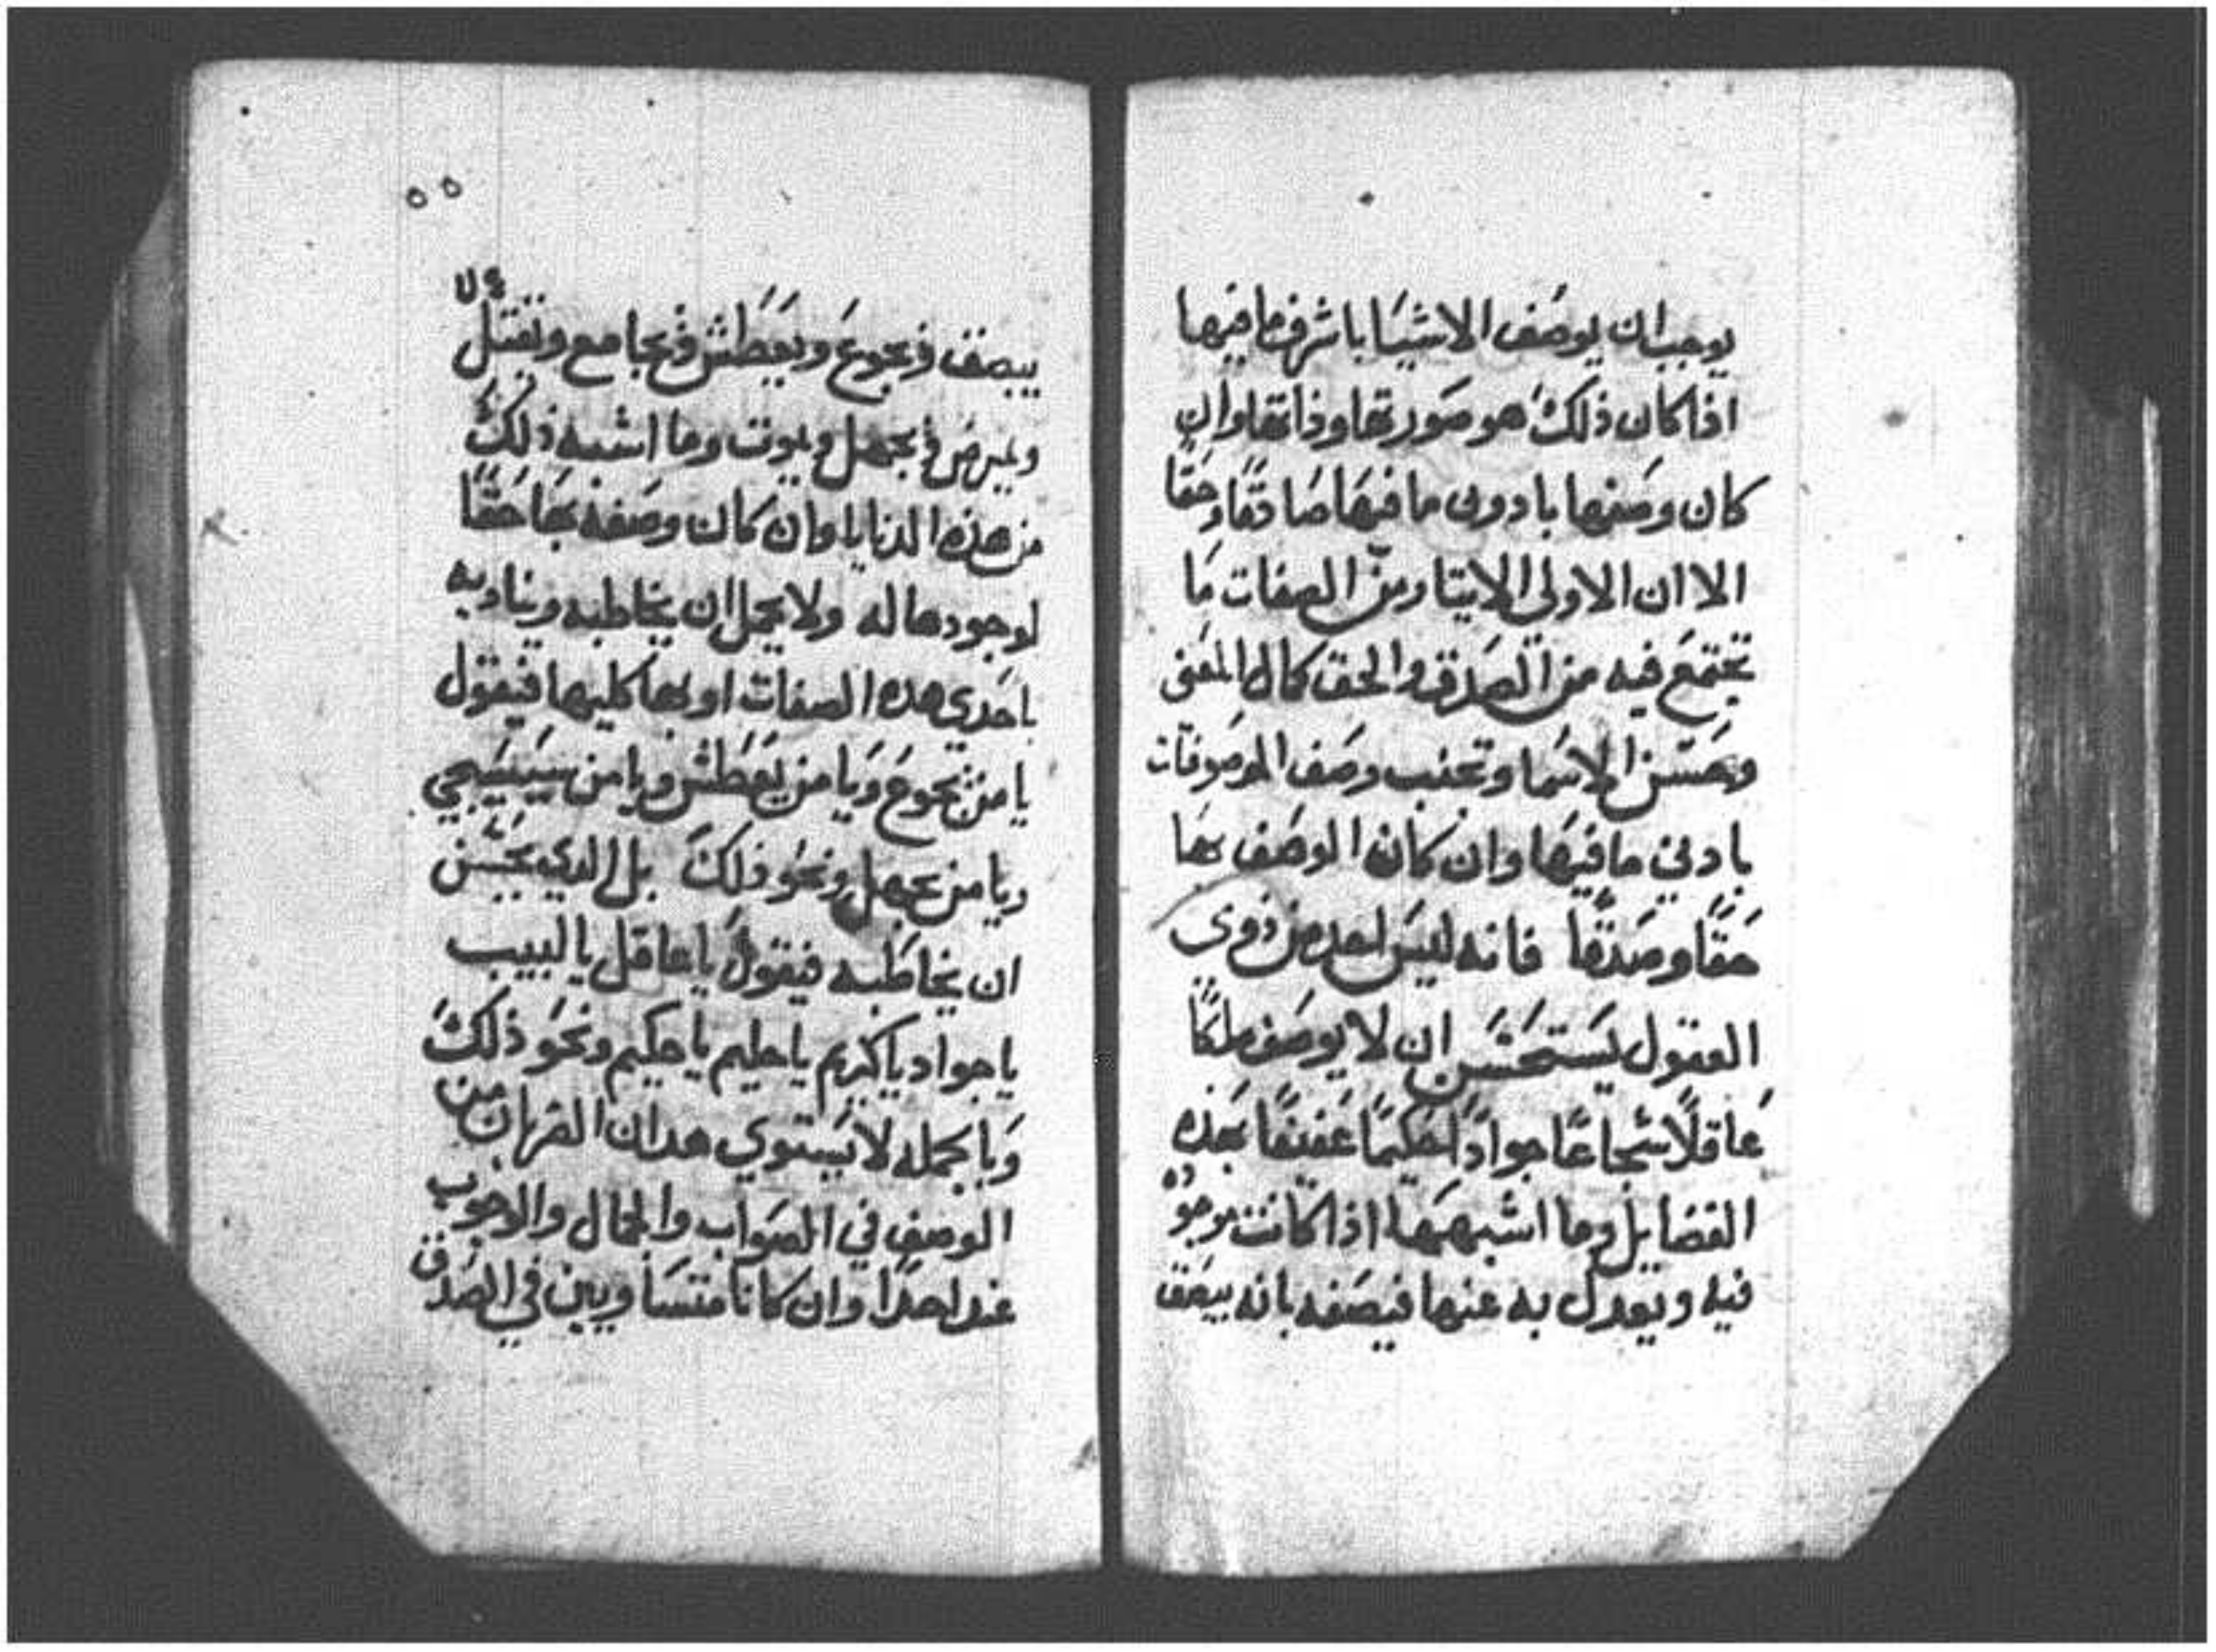 يوجب ان يوصف الاشيا باشرف ما فيها
اذا كان ذلك هو صورتها وذاتها وان
كان وصفها بادون ما فيها صادقا وحقا
الا ان الاولى الايثار من الصفات ما
تجتمع فيه من الصدق والحق كمال المعنى
وحسن الاسما وتجنب وصف الموصوفات
بادني ما فيها وان كان الوصف بها
حقا وصدقا فانه ليس احد من ذوى
العقول يستحسن ان لا يوصف ملكا
عاقلا شجاعا جوادا حكيما عفيفا بهذه
الفضايل وما اشبهها اذا كانت موجوده
فيه ويعدل به عنها فيصفه بانه يبصق
٥٥
يبصق ويجوع ويعطش ويجامع ويقتل
ويمرض ويجهل ويموت وما اشبه ذلك
من هذه الدنايا وان كان وصفه بها حقا
لوجودها له ولا يجمل ان يخاطبه ويناديه
باحدي هده الصفات او بها كليها فيقول
يا من يجوع ويا من يعطش ويا من
ويا من يجهل ونحو ذلك بل الدي يحسن
ان يخاطبه فيقول يا عاقل يا لبيب
يا جواد يا كريم يا حليم يا حكيم ونحو ذلك
وبالجمله لا يستوي هدان من
الوصف في الصواب والجمال والوجوب
عند احدا وان كانا متساويين في الصدق